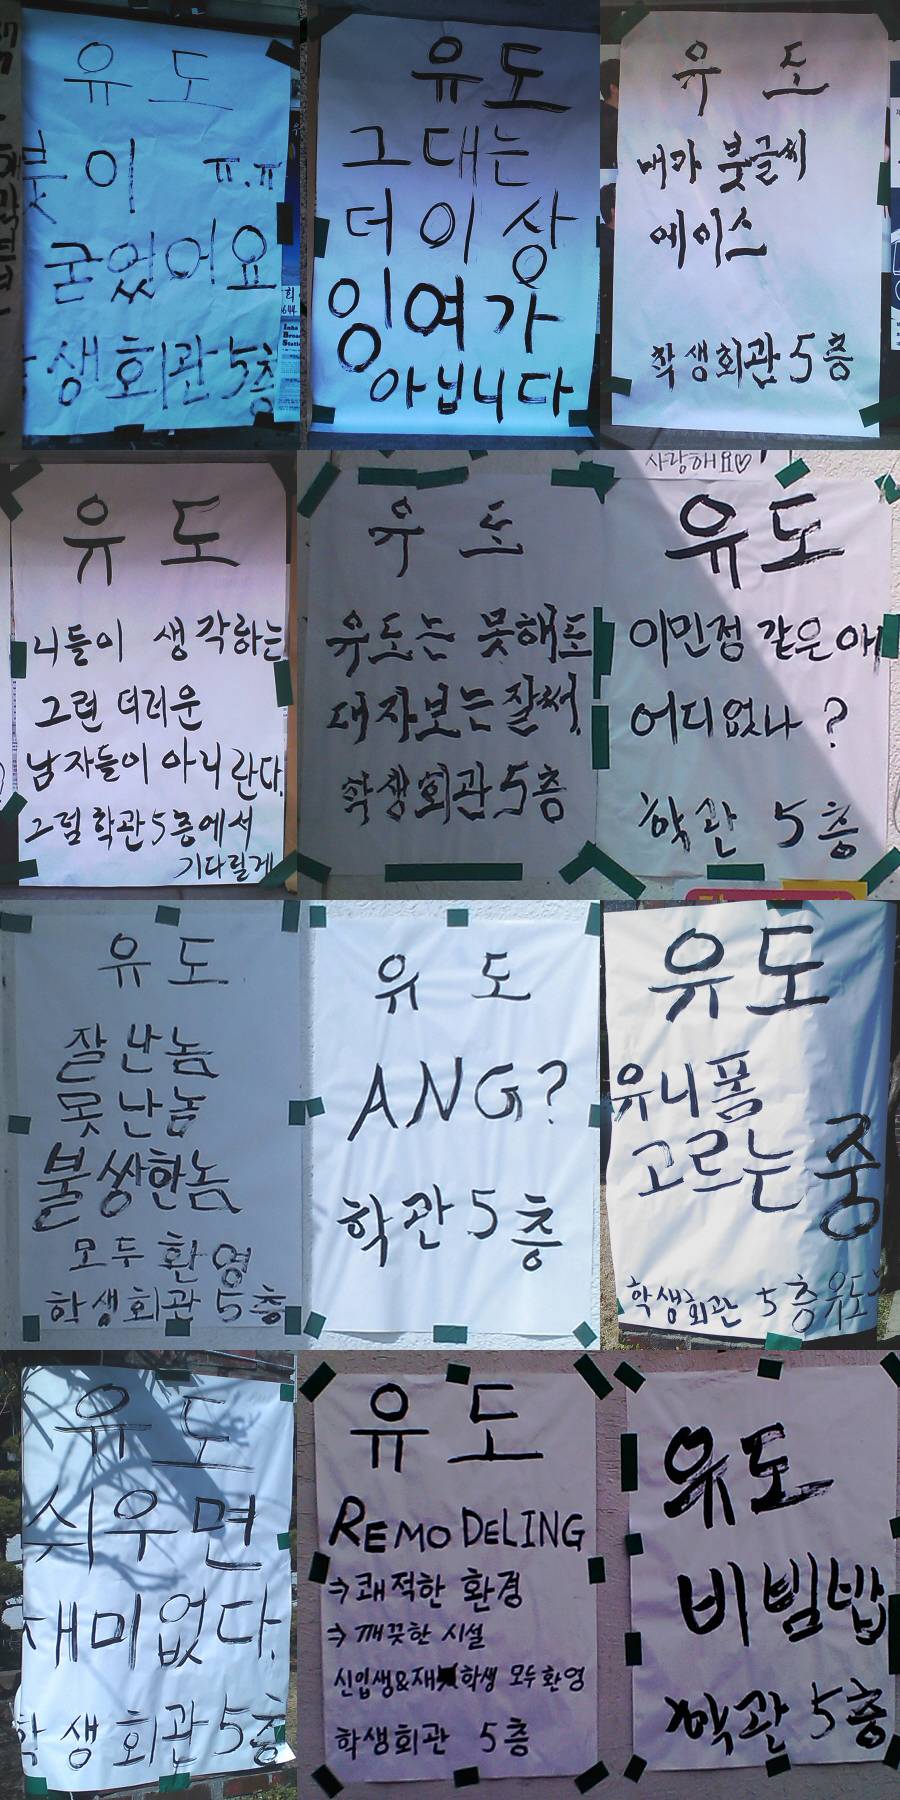 유 도
붓이 ㅠ.ㅠ
굳었어요
학생회관 5층
유도
그대는
더 이상
잉여가
아닙니다
유 도
내가 붓글씨
에이스
학생회관 5층
유 도
니들이 생각하는
그런 더러운
남자들이 아니란다.
그럼 학관 5층에서
기다릴게
유 도
유도는 못해도
대자보는 잘써.
학생회관 5층
사랑해요♡
유도
이민정 같은 애
어디없나 ?
학관 5층
유 도
잘난놈
못난놈
불쌍한놈
모두 환영
학생회관 5층
유 도
ANG?
학관 5층
유도
유니폼
고르는 중
학생회관 5층 유도
유 도
쉬우면
재미없다.
학생회관 5층
유 도
REMODELING
⇒ 쾌적한 환경
⇒ 깨끗한 시설
신입생&재학생 모두 환영
학생회관 5층
유도
비빔밥
학관 5층